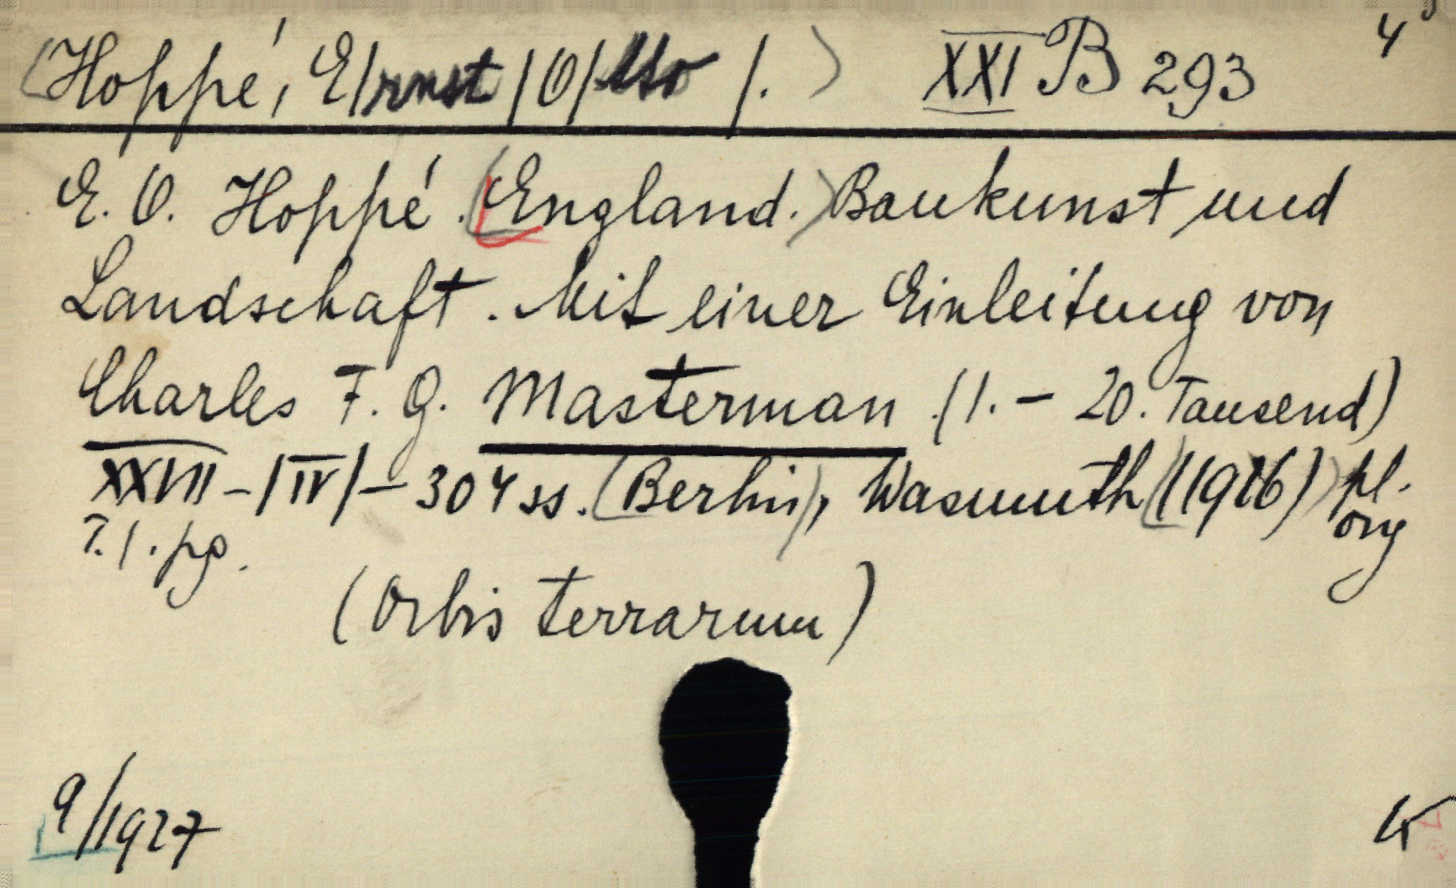 (Hoppé, E/rnst /O/tto /.) XXI B 293 4°
E. O. Hoppé. (England.) Baukunst und
Landschaft. Mit einer Einleitung von
Charles F. G. Masterman. (1.- 20. Tausend)
XXVII - /IV/ - 304 ss. (Berlin), Wasmuth ((1926)) pl.
T. 1. pg. org
(Orbis terrarum)
9/1927